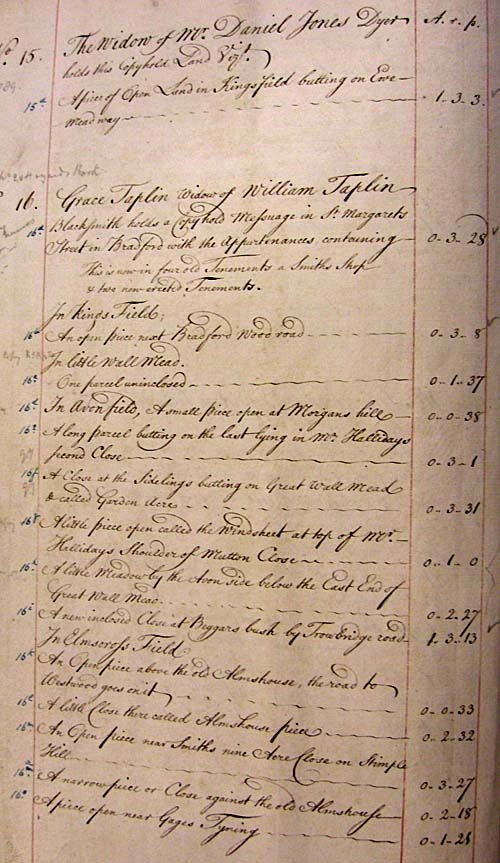 No 15. The Widow of Mr. Daniel Jones Dyer A. r. p.
holds this Copyhold Land Vizt.
15a A piece of Open Land in Kingsfield butting on Ewe 1-3-3
Mead way
16. Grace Taplin Widow of William Taplin
16a Blacksmith holds a Copyhold Messuage in St. Margarets
Street in Bradford with the Appurtenances containing 0-3-28
This is now in four old Tenements a Smiths Shop
& two new erected Tenements.
In Kings Field;
An open piece next Bradford Wood road 0-3-8
In little Wall Mead.
16c One parcel uninclosed 0-1-37
16d In Avon field, A small piece open at Morgans hill 0-0-38
16e A long parcel butting on the last lying in Mr. Hallidays
second Close 0-3-1
16f A Close at the Sidelings butting on Great Wall Mead
& called Garden Acre 0-3-31
16g A little piece open called the Windsheet at top of Mr.
Hallidays Shoulder of Mutton Close 0-1-0
16h A little Meadow by the Avon side below the East End of
Great Wall Mead 0-2-27
16i A new inclosed Close at Beggars bush by Trowbridge road 1-3-13
In Elmscross Field
16k An Open piece above the old Almshouse, the road to
Westwood goes on it 0-0-33
16l A little Close there called Almshouse piece 0-2-32
16m An Open piece near Smiths nine Acre Close on Stimple
Hill 0-3-27
16n A narrow piece or Close against the old Almshouse 0-2-18
16o A piece open near Gages Tyning 0-1-28